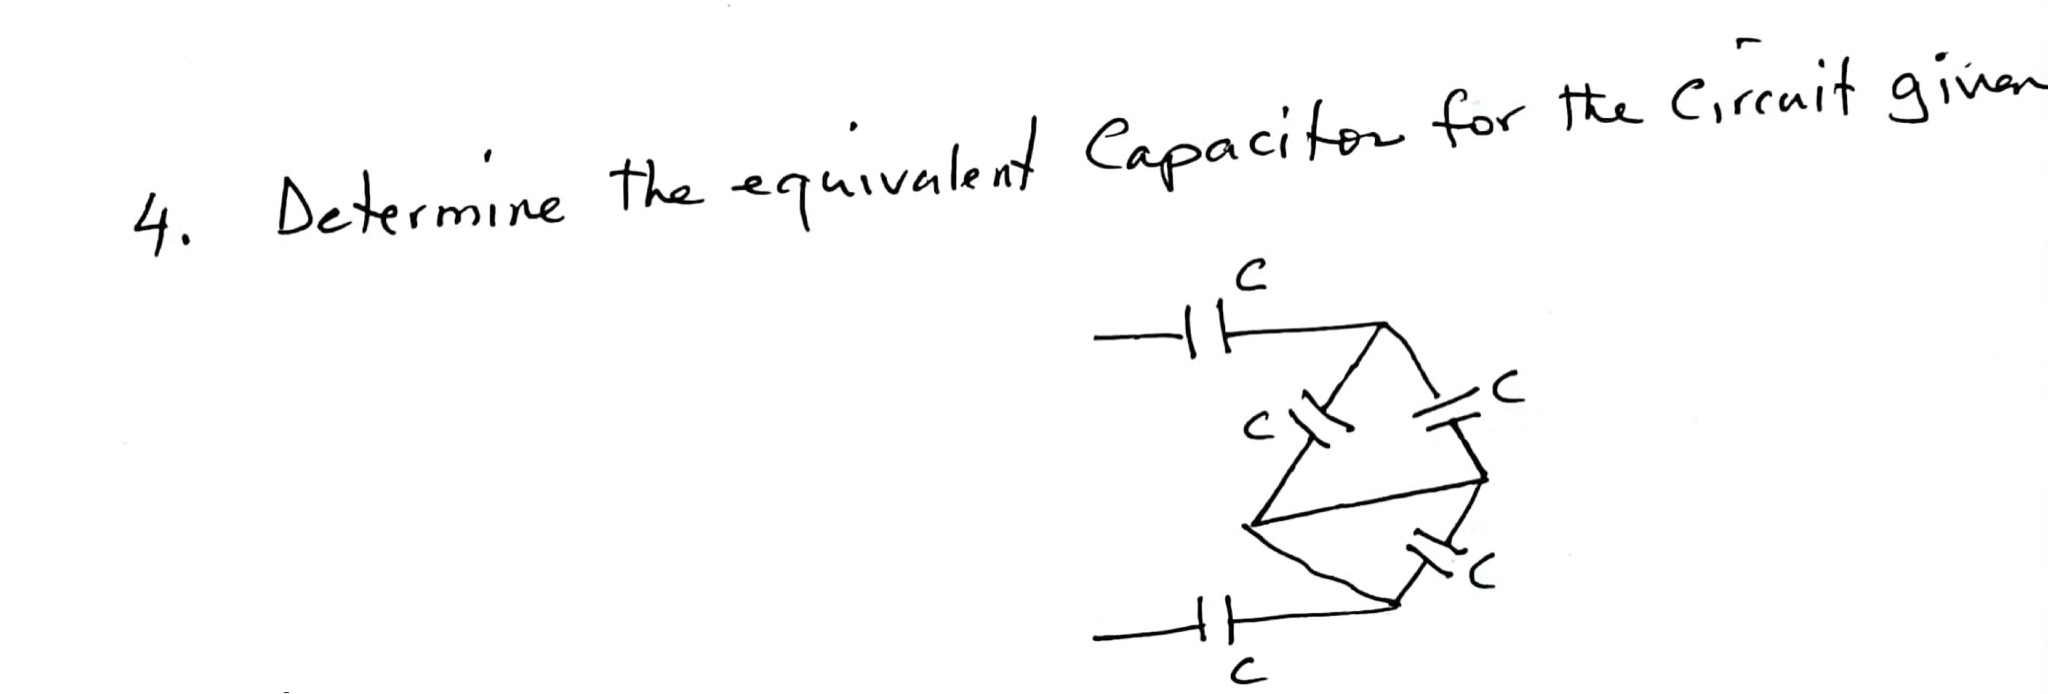 4. Determine the equivalent Capacitor for the Circuit given
C
C
C
C
C